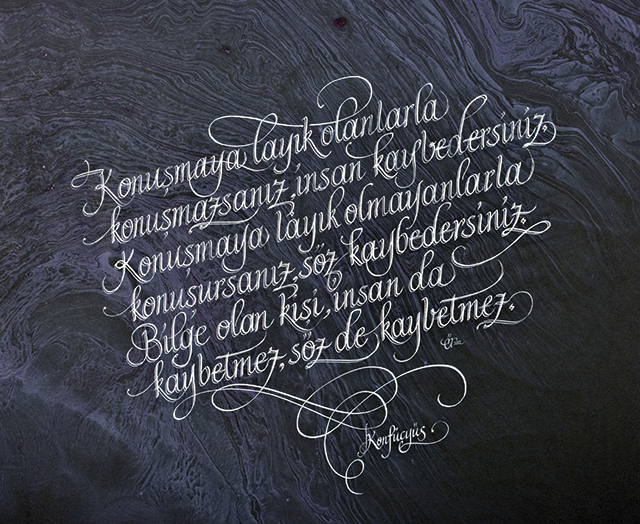 Konuşmaya layık olanlarla
konuşmazsanız, insan kaybedersiniz.
Konuşmaya layık olmayanlarla
konuşursanız, söz kaybedersiniz.
Bilge olan kişi, insan da
kaybetmez, söz de kaybetmez.
Konfüçyüs